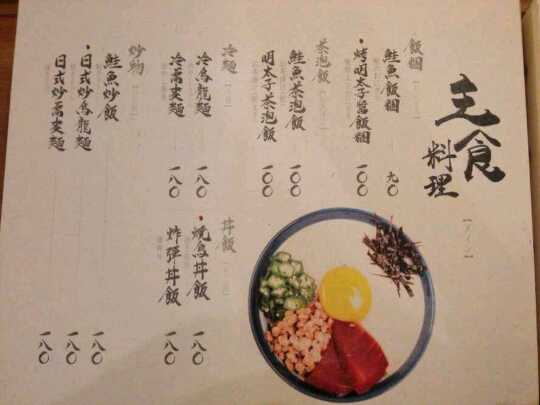 主食
料理
【メイン】
飯糰
鮭魚飯糰
九〇
・烤明太子醬飯糰
一〇〇
茶泡飯
鮭魚茶泡飯
一〇〇
明太子茶泡飯
一〇〇
冷麵
冷烏龍麵
一八〇
冷蕎麥麵
一八〇
丼飯
・燒鳥丼飯
一八〇
炸彈丼飯
一八〇
炒物
鮭魚炒飯
一八〇
・日式炒烏龍麵
一八〇
日式炒蕎麥麵
一八〇